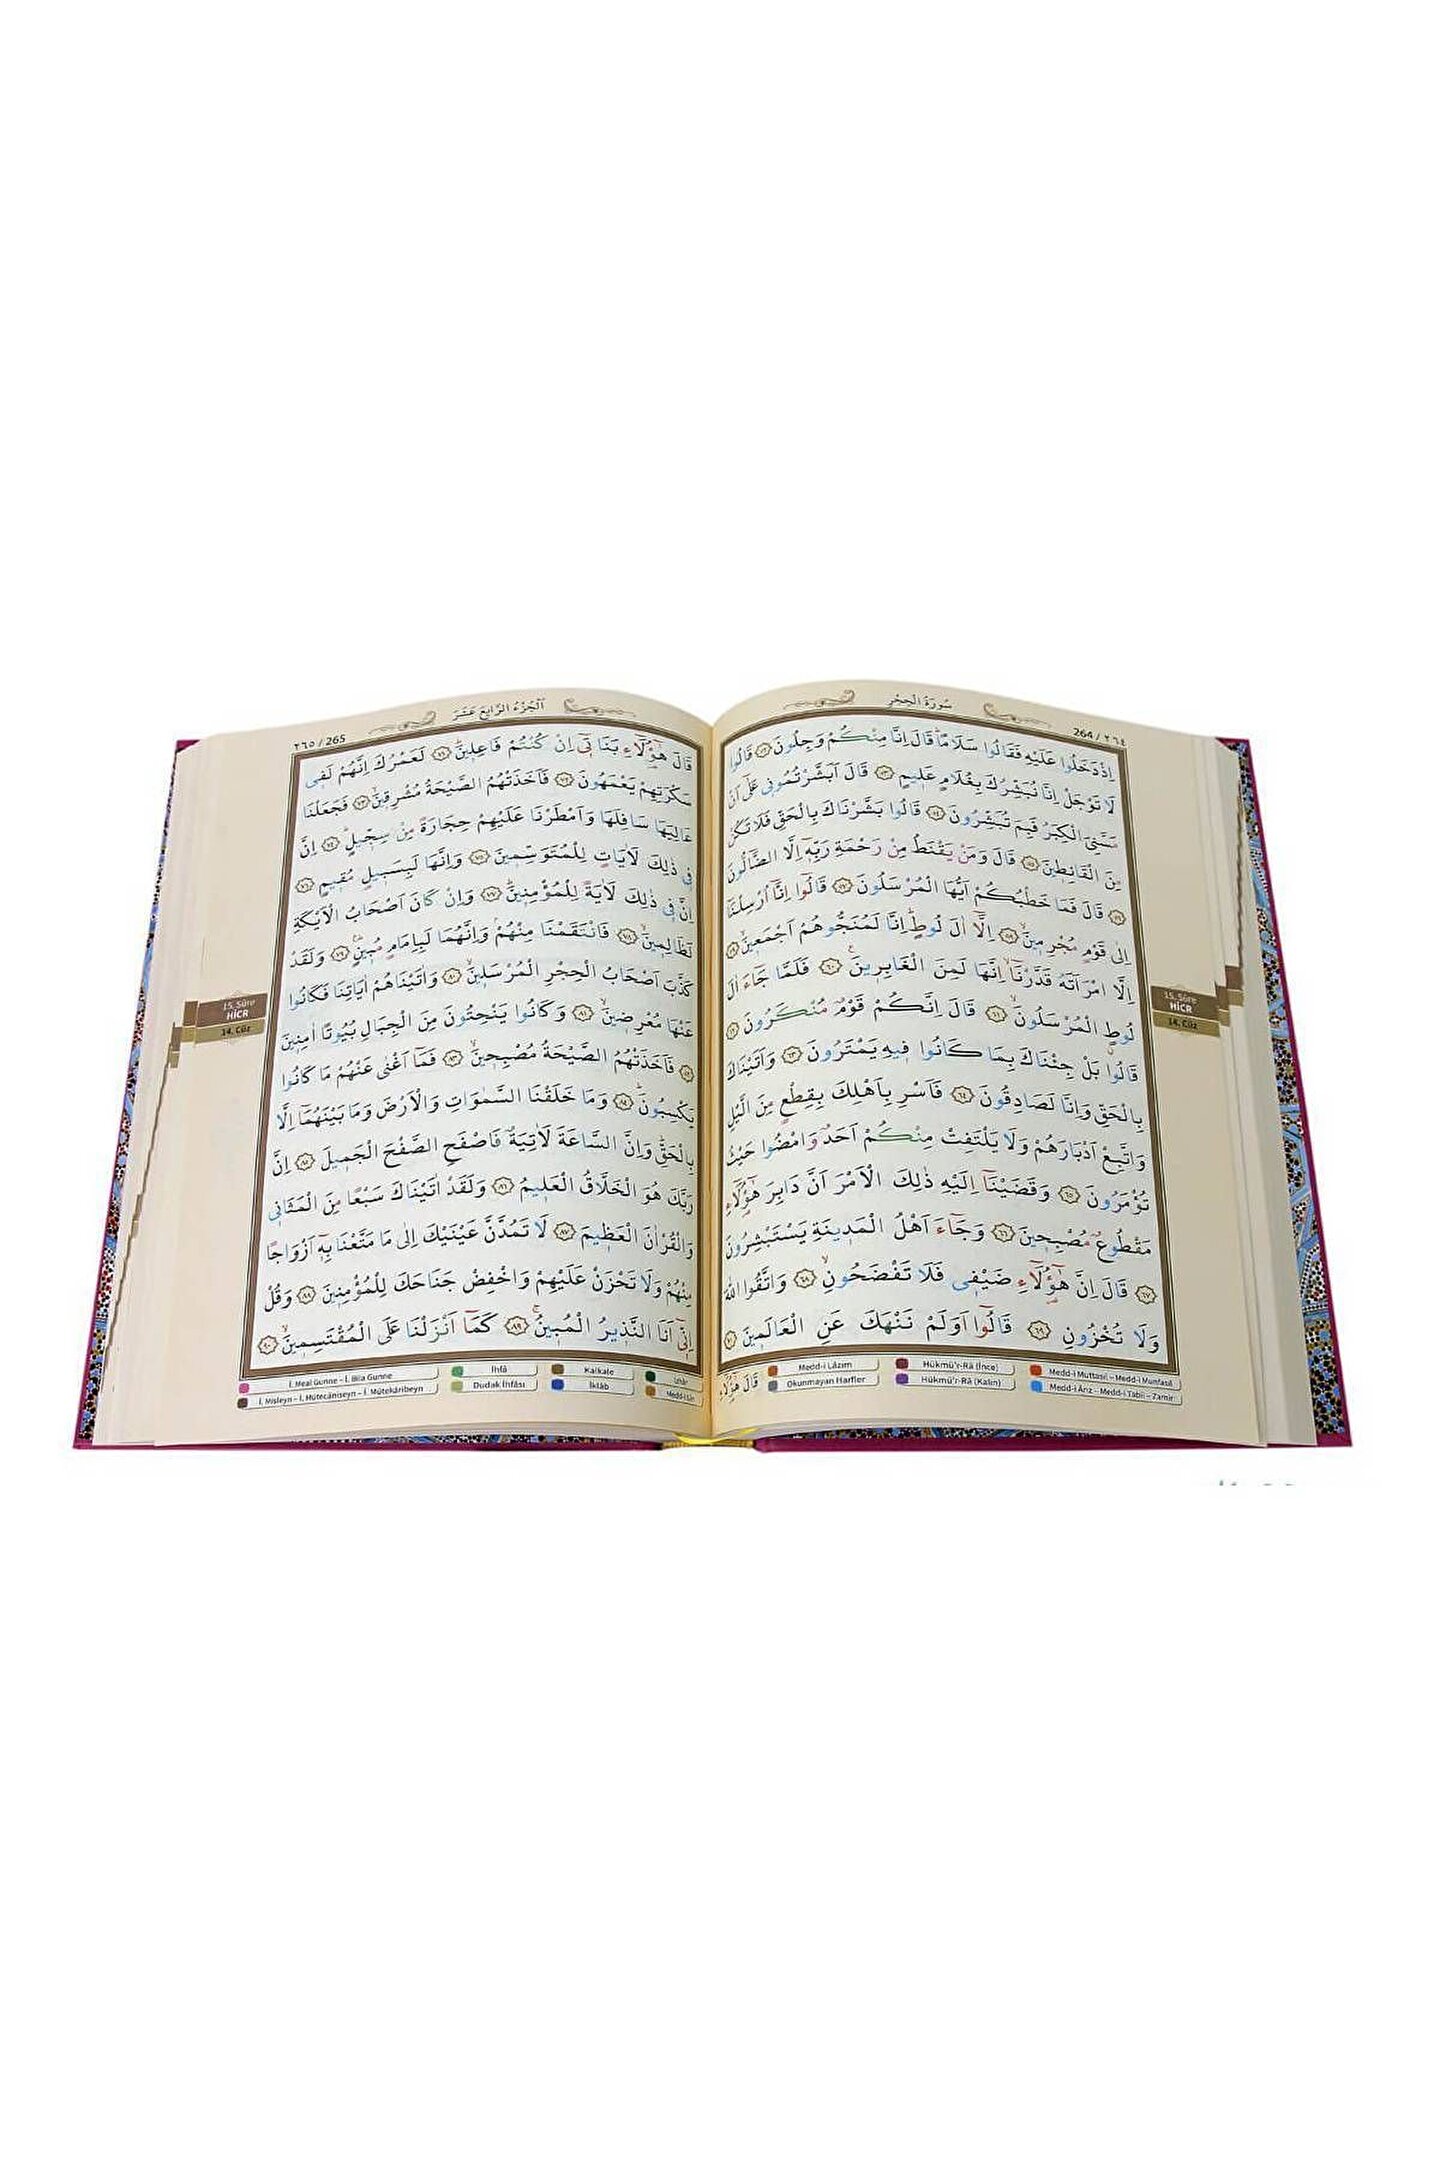 سُورَةُ الْحِجْرِ
264 / ٢٦٤
اِذْ دَخَلُوا عَلَيْهِ فَقَالُوا سَلَامًاۜ قَالَ اِنَّا مِنْكُمْ وَجِلُونَ ﴿٥٢﴾ قَالُوا
لَا تَوْجَلْ اِنَّا نُبَشِّرُكَ بِغُلَامٍ عَلٖيمٍ ﴿٥٣﴾ قَالَ اَبَشَّرْتُمُونٖي عَلٰٓى اَنْ
مَسَّنِيَ الْكِبَرُ فَبِمَ تُبَشِّرُونَ ﴿٥٤﴾ قَالُوا بَشَّرْنَاكَ بِالْحَقِّ فَلَا تَكُنْ
مِنَ الْقَانِطٖينَ ﴿٥٥﴾ قَالَ وَمَنْ يَقْنَطُ مِنْ رَحْمَةِ رَبِّهٖٓ اِلَّا الضَّٓالُّونَ
﴿٥٦﴾ قَالَ فَمَا خَطْبُكُمْ اَيُّهَا الْمُرْسَلُونَ ﴿٥٧﴾ قَالُٓوا اِنَّٓا اُرْسِلْنَٓا
اِلٰى قَوْمٍ مُجْرِمٖينَۙ ﴿٥٨﴾ اِلَّٓا اٰلَ لُوطٍۜ اِنَّا لَمُنَجُّوهُمْ اَجْمَعٖينَۙ ﴿٥٩﴾
اِلَّا امْرَاَتَهُ قَدَّرْنَٓاۙ اِنَّهَا لَمِنَ الْغَابِرٖينَ۟ ﴿٦٠﴾ فَلَمَّا جَٓاءَ اٰلَ
لُوطٍ الْمُرْسَلُونَۙ ﴿٦١﴾ قَالَ اِنَّكُمْ قَوْمٌ مُنْكَرُونَ ﴿٦٢﴾
قَالُوا بَلْ جِئْنَاكَ بِمَا كَانُوا فٖيهِ يَمْتَرُونَ ﴿٦٣﴾ وَاَتَيْنَاكَ
بِالْحَقِّ وَاِنَّا لَصَادِقُونَ ﴿٦٤﴾ فَاَسْرِ بِاَهْلِكَ بِقِطْعٍ مِنَ الَّيْلِ
وَاتَّبِعْ اَدْبَارَهُمْ وَلَا يَلْتَفِتْ مِنْكُمْ اَحَدٌ وَامْضُوا حَيْثُ
تُؤْمَرُونَ ﴿٦٥﴾ وَقَضَيْنَٓا اِلَيْهِ ذٰلِكَ الْاَمْرَ اَنَّ دَابِرَ هٰٓؤُ۬لَٓاءِ
مَقْطُوعٌ مُصْبِحٖينَ ﴿٦٦﴾ وَجَٓاءَ اَهْلُ الْمَدٖينَةِ يَسْتَبْشِرُونَ
﴿٦٧﴾ قَالَ اِنَّ هٰٓؤُ۬لَٓاءِ ضَيْفٖي فَلَا تَفْضَحُونِۙ ﴿٦٨﴾ وَاتَّقُوا اللّٰهَ
وَلَا تُخْزُونِ ﴿٦٩﴾ قَالُٓوا اَوَلَمْ نَنْهَكَ عَنِ الْعَالَمٖينَ ﴿٧٠﴾
قَالَ هٰٓؤُ۬لَٓاءِ
15. Sûre
HİCR
14. Cüz
Medd-i Lâzım
Hükmü'r-Râ (İnce)
Medd-i Muttasıl – Medd-i Munfasıl
Okunmayan Harfler
Hükmü'r-Râ (Kalın)
Medd-i Ârız – Medd-i Tabiî – Zamir
اَلْجُزْءُ الرَّابِعَ عَشَرَ
٢٦٥ / 265
قَالَ هٰٓؤُ۬لَٓاءِ بَنَاتٖٓي اِنْ كُنْتُمْ فَاعِلٖينَۜ ﴿٧١﴾ لَعَمْرُكَ اِنَّهُمْ لَفٖي
سَكْرَتِهِمْ يَعْمَهُونَ ﴿٧٢﴾ فَاَخَذَتْهُمُ الصَّيْحَةُ مُشْرِقٖينَۙ ﴿٧٣﴾ فَجَعَلْنَا
عَالِيَهَا سَافِلَهَا وَاَمْطَرْنَا عَلَيْهِمْ حِجَارَةً مِنْ سِجّٖيلٍۜ ﴿٧٤﴾ اِنَّ
فٖي ذٰلِكَ لَاٰيَاتٍ لِلْمُتَوَسِّمٖينَ ﴿٧٥﴾ وَاِنَّهَا لَبِسَبٖيلٍ مُقٖيمٍ ﴿٧٦﴾
اِنَّ فٖي ذٰلِكَ لَاٰيَةً لِلْمُؤْمِنٖينَۜ ﴿٧٧﴾ وَاِنْ كَانَ اَصْحَابُ الْاَيْكَةِ
لَظَالِمٖينَۙ ﴿٧٨﴾ فَانْتَقَمْنَا مِنْهُمْۢ وَاِنَّهُمَا لَبِاِمَامٍ مُبٖينٍۜ۟ ﴿٧٩﴾ وَلَقَدْ
كَذَّبَ اَصْحَابُ الْحِجْرِ الْمُرْسَلٖينَۙ ﴿٨٠﴾ وَاٰتَيْنَاهُمْ اٰيَاتِنَا فَكَانُوا
عَنْهَا مُعْرِضٖينَۙ ﴿٨١﴾ وَكَانُوا يَنْحِتُونَ مِنَ الْجِبَالِ بُيُوتًا اٰمِنٖينَ
﴿٨٢﴾ فَاَخَذَتْهُمُ الصَّيْحَةُ مُصْبِحٖينَۙ ﴿٨٣﴾ فَمَٓا اَغْنٰى عَنْهُمْ مَا كَانُوا
يَكْسِبُونَۜ ﴿٨٤﴾ وَمَا خَلَقْنَا السَّمٰوَاتِ وَالْاَرْضَ وَمَا بَيْنَهُمَٓا اِلَّا
بِالْحَقِّۜ وَاِنَّ السَّاعَةَ لَاٰتِيَةٌ فَاصْفَحِ الصَّفْحَ الْجَمٖيلَ ﴿٨٥﴾ اِنَّ
رَبَّكَ هُوَ الْخَلَّاقُ الْعَلٖيمُ ﴿٨٦﴾ وَلَقَدْ اٰتَيْنَاكَ سَبْعًا مِنَ الْمَثَانٖي
وَالْقُرْاٰنَ الْعَظٖيمَ ﴿٨٧﴾ لَا تَمُدَّنَّ عَيْنَيْكَ اِلٰى مَا مَتَّعْنَا بِهٖٓ اَزْوَاجًا
مِنْهُمْ وَلَا تَحْزَنْ عَلَيْهِمْ وَاخْفِضْ جَنَاحَكَ لِلْمُؤْمِنٖينَ ﴿٨٨﴾ وَقُلْ
اِنّٖٓي اَنَا النَّذٖيرُ الْمُبٖينُۚ ﴿٨٩﴾ كَمَٓا اَنْزَلْنَا عَلَى الْمُقْتَسِمٖينَۙ ﴿٩٠﴾
15. Sûre
HİCR
14. Cüz
İ. Meal Gunne – İ. Bila Gunne
İhfâ
Kalkale
İzhâr
İ. Misleyn – İ. Mütecâniseyn – İ. Mütekâribeyn
Dudak İhfâsı
İklâb
Medd-i Lîn